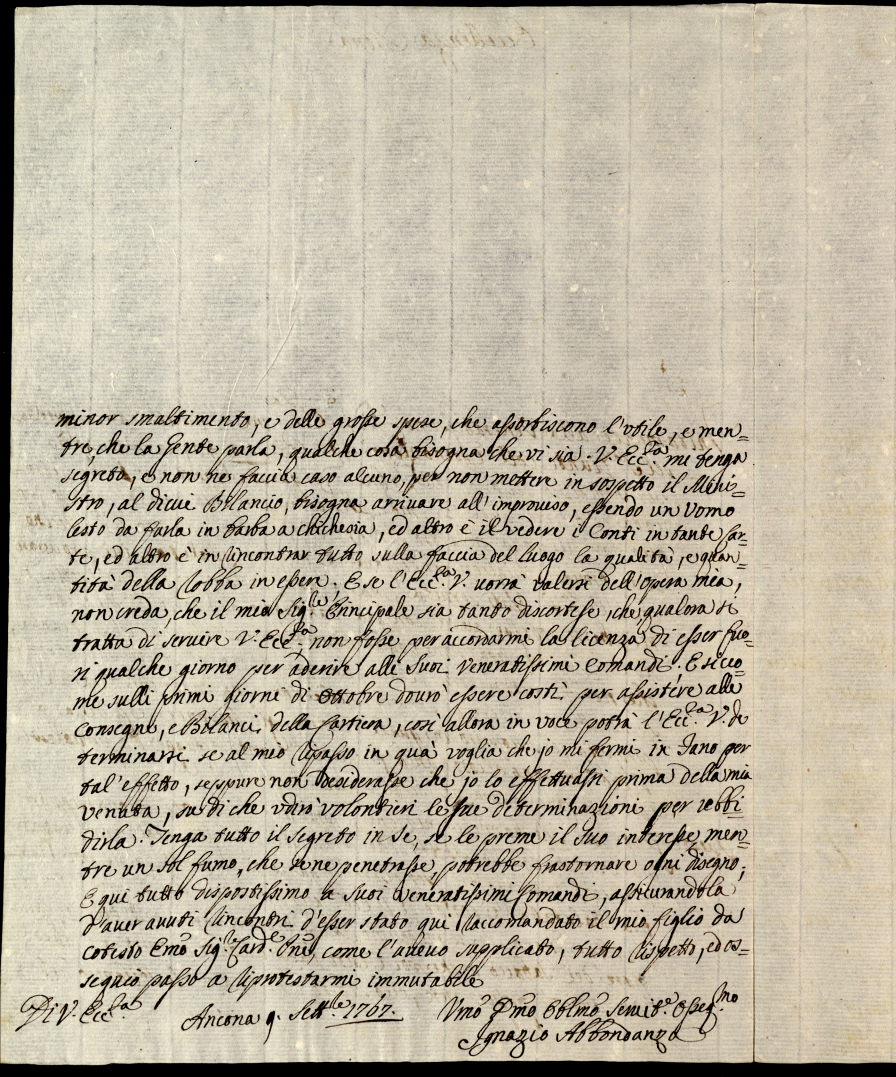 minor smaltimento, e delle grosse spese, che assorbiscono l'utile, e men=
tre, che la Gente parla, qualche cosa bisogna che vi sia. V. Ecc.za mi tenga
segreto, e non ne faccia caso alcuno, per non mettere in sospetto il Mini=
stro, al di cui Bilancio, bisogna arrivare all'improviso, essendo un Vomo
lesto da farla in barba a chichesia, ed altro è il vedere i Conti in tante Car=
te, ed altro è in Rincontrar tutto sulla faccia del luogo la qualità, e quan=
tità della Robba in essere. E se l'Ecc.za V. vorrà valersi dell'opera mia,
non creda, che il mio Sig.re Principale sia tanto discortese, che qualora si
tratta di servire V. Ecc.za, non fosse per accordarmi la licenza di esser fuo=
ri qualche giorno per aderire alli Suoi Veneratissimi Comandi. E sicco=
me sulli primi giorni di Ottobre dovrò essere costì per assistere alle
Consegne, e Bilanci della Cartiera, così allora in voce potrà l'Ecc.za V. de
terminarsi se al mio Ripasso in quà voglia che jo mi fermi in Fano per
tal'effetto, seppure non desiderasse che jo lo effettuassi prima della mia
venuta, su di che udirò volontieri le Sue determinazioni per ubbi=
dirla. Tenga tutto il segreto in se, se le preme il Suo interesse, men=
tre un sol fumo, che se ne penetrasse, potrebbe frastornare ogni disegno;
E qui tutto dispostissimo a Suoi Veneratissimi Comandi, assicurandola
d'aver avuti Rincontri d'esser stato qui Raccomandato il mio figlio da
cotesto Emo Sig.re Card.e, come l'avevo supplicato, tutto Rispetto, ed os=
sequio passo a Riprotestarmi immutabile
Di V. Ecc.za
Ancona 9. Sett.re 1767.
Umo Dmo Obblmo Servit.e Osseq.mo
Ignazio Abbondanza